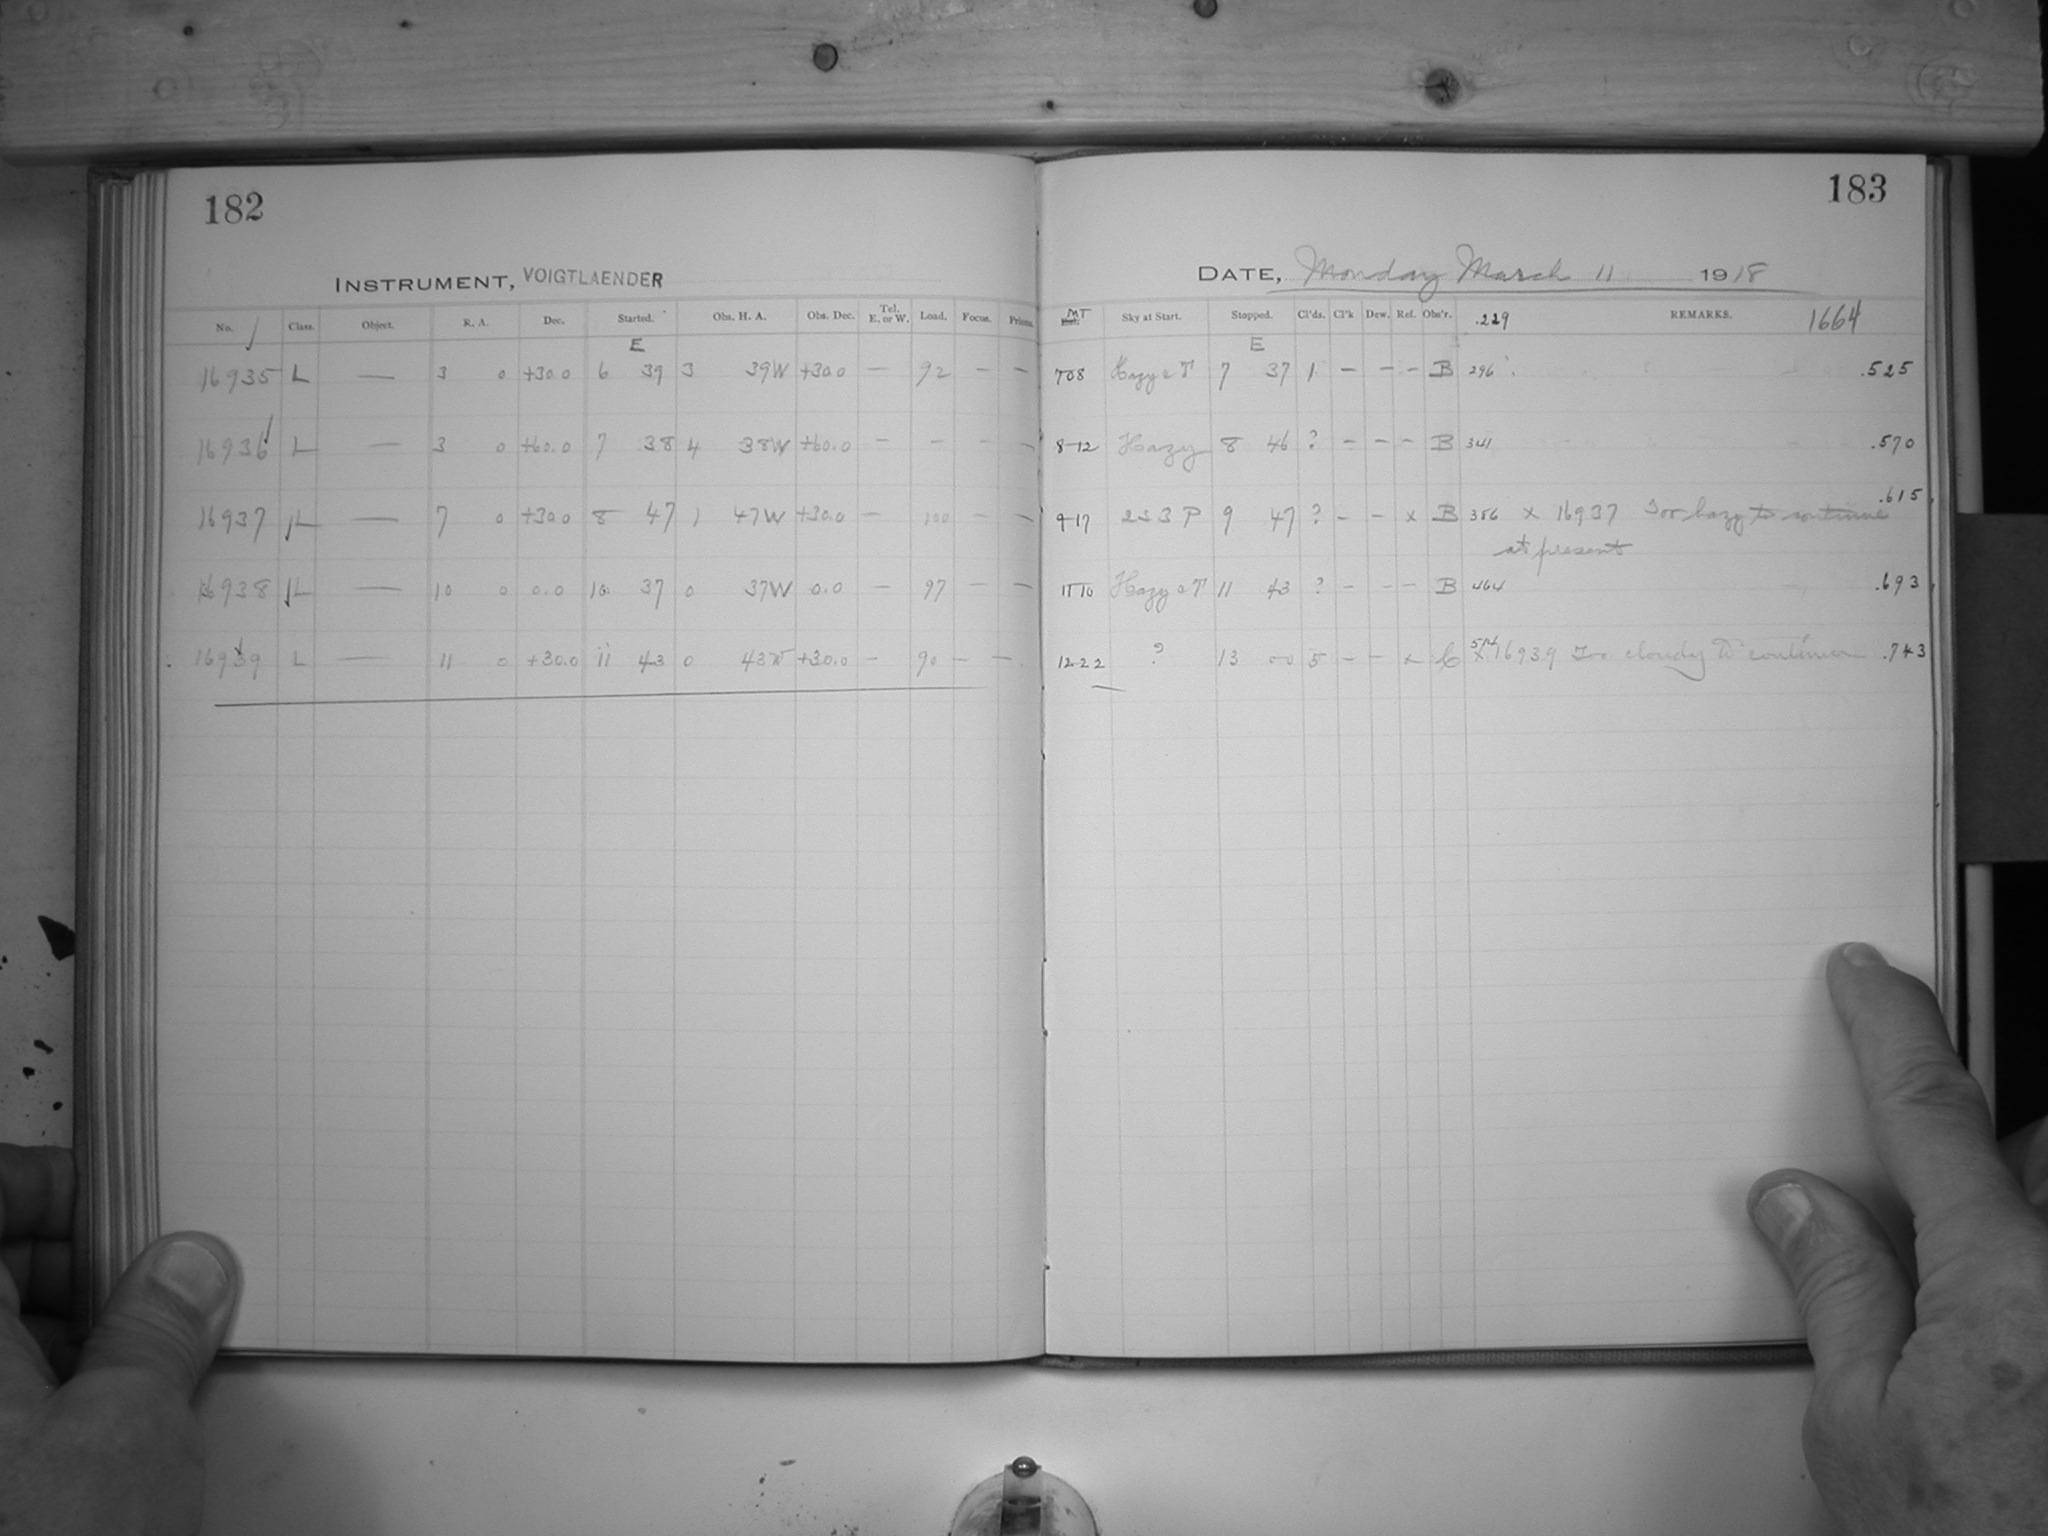 182
INSTRUMENT, VOIGTLAENDER
No. Class. Object. R. A. Dec. Started. Obs. H. A. Obs. Dec. Tel. E. or W. Load. Focus. Prisms.
E
16935 L — 3 0 +30.0 6 39 3 39W +30.0 — 92 — —
16936 L — 3 0 +60.0 7 38 4 38W +60.0 — — — —
16937 L — 7 0 +30.0 8 47 1 47W +30.0 — 100 — —
16938 L — 10 0 0.0 10 37 0 37W 0.0 — 97 — —
16939 L — 11 0 +30.0 11 43 0 43W +30.0 — 90 — —
183
DATE, Monday March 11 1918
MT Sky at Start. Stopped. Cl'ds. Cl'k Dew. Ref. Obs'r. .229 REMARKS. 1664
E
708 Hazy 7 37 1 — — — B 296 .525
8-12 Hazy 8 46 ? — — — B 341 .570
9-17 P 9 47 ? — — x B 386 x 16937 Too hazy to continue .615
at present
11 10 Hazy 11 43 ? — — — B 464 .693
12-22 ? 13 00 5 — — x C 514 x 16939 Too cloudy to continue .743